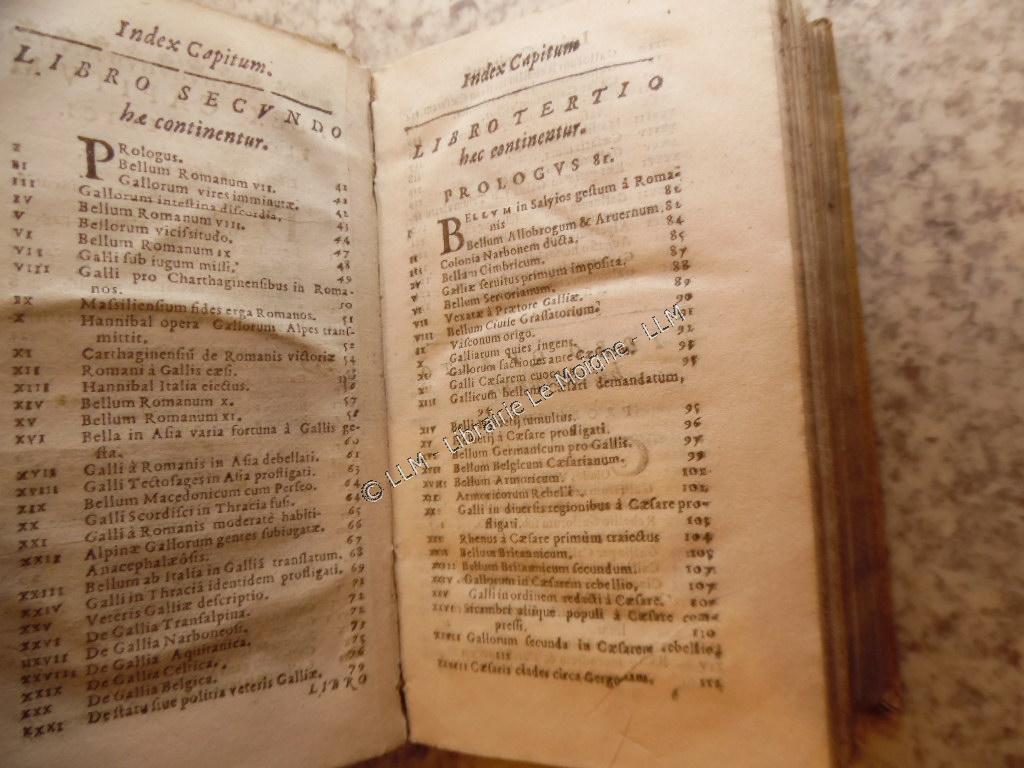 Index Capitum.
LIBRO SECVNDO
hæ continentur.
I PRologus. 41
II Bellum Romanum VII. 41
III Gallorum vires imminutæ. 42
IV Gallorum intestina discordia.
V Bellum Romanum VIII. 43
VI Bellorum vicissitudo. 44
VII Bellum Romanum IX 47
VIII Galli sub iugum missi. 48
Galli pro Charthaginensibus in Roma- 49
nos.
IX Massiliensium fides erga Romanos. 50
X Hannibal opera Gallorum Alpes trans- 51
mittit.
XI Carthaginensiū de Romanis victoriæ 52
XII Romani à Gallis cæsi. 54
XIII Hannibal Italia eiectus.
XIV Bellum Romanum X. 57
XV Bellum Romanum XI. 58
XVI Bella in Asia varia fortuna à Gallis ge-
sta. 60
XVII Galli à Romanis in Asia debellati. 61
XVIII Galli Tectosages in Asia profligati. 63
XIX Bellum Macedonicum cum Perseo. 64
XX Galli Scordisci in Thracia fusi. 64
XXI Galli à Romanis moderatè habiti. 65
XXII Alpinæ Gallorum gentes subiugatæ. 66
Anacephalæôsis. 67
XXIII Bellum ab Italia in Galliā translatum. 68
XXIV Galli in Thraciā identidem profligati. 69
XXV Veteris Galliæ descriptio. 71
XXVI De Gallia Transalpina. 72
XXVII De Gallia Narbonensi. 72
XXVIII De Gallia Aquitanica. 75
XXIX De Gallia Celtica. 76
XXX De Gallia Belgica.
XXXI De statu siue politia veteris Galliæ. 79
LIBRO
Index Capitum
LIBRO TERTIO
hæc continentur.
PROLOGVS 81.
I BELLVM in Salyios gestum à Roma-
nis 82
II Bellum Allobrogum & Aruernum. 82
III Colonia Narbonem ducta. 84
IV Bellum Cimbricum. 85
V Galliæ seruitus primum imposita. 87
VI Bellum Sertorianum. 88
VII Vexatæ à Prætore Galliæ. 89
VIII Bellum Ciuile Grassatorium. 90
IX Vasconum origo. 91
X Galliarum quies ingens. 92
XI Gallorum factiones ante 93
XII Galli Cæsarem 95
XIII Gallicum bellum demandatum,
XIV tumultus. 95
XV à Cæsare profligati. 96
XVI Bellum Germanicum pro Gallis. 97
XVII Bellum Belgicum Cæsarianum. 99
XVIII Bellum Armoricum. 101
XIX Armoricorum
XX Galli in diuersis regionibus à Cæsare pro-
fligati. 103
XXI Rhenus à Cæsare primùm traiectus 104
XXII Bellum Britannicum. 105
XXIII Bellum Britannicum secundum. 107
XXIV Gallorum in Cæsarem rebellio. 107
XXV Galli in ordinem redacti à Cæsare.
XXVI Sicambri aliique populi à Cæsare com-
pressi. 110
XXVII Gallorum secunda in Cæsarem rebellio
111
XXVIII Cæsaris clades circa
© LLM - Librairie Le Moigne - LLM